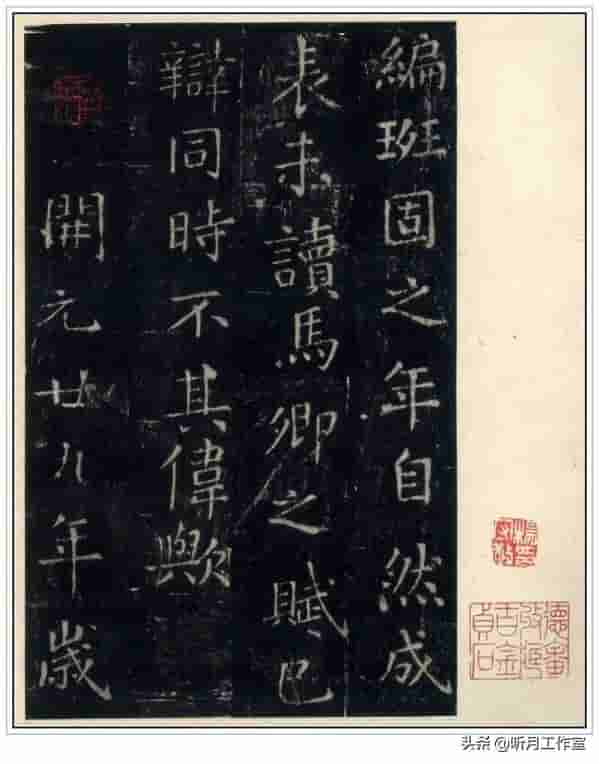 編班固之年自然成
表未讀馬卿之賦已
辯同時不其偉歟
開元廿九年歲
头条 @听月工作室